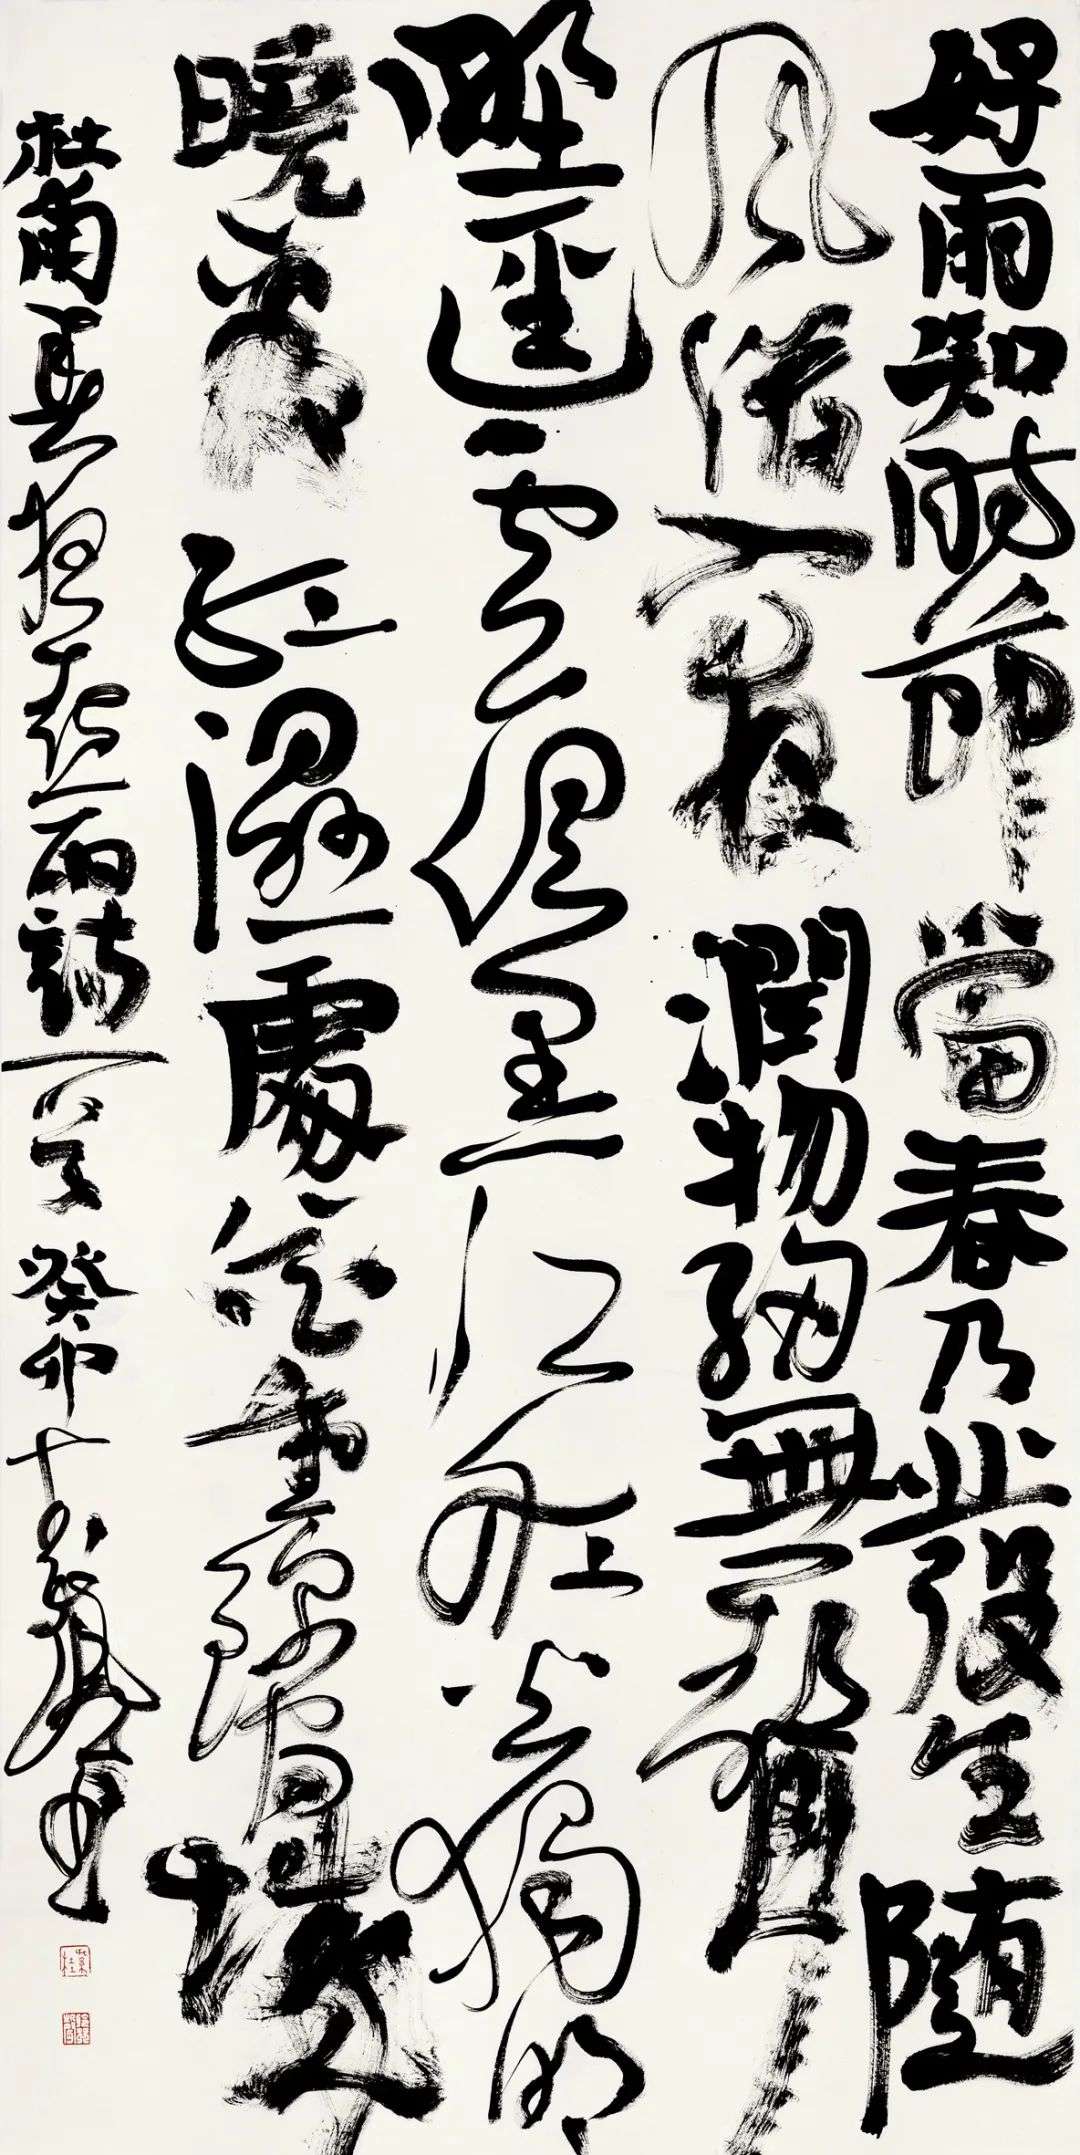 好雨知時節當春乃發生随
風潛入夜潤物細無聲
野逕雲俱黑江船火獨明
曉看紅濕處花重錦官城
杜甫春夜喜雨詩一首癸卯十